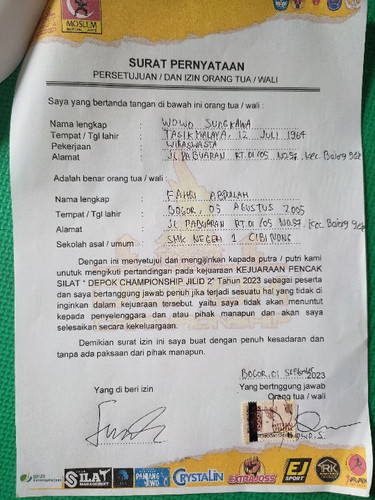 MOSLEM
SURAT PERNYATAAN
PERSETUJUAN / DAN IZIN ORANG TUA / WALI
Saya yang bertanda tangan di bawah ini orang tua / wali :
Nama lengkap : WOWO SUNGKAWA
Tempat / Tgl lahir : TASIKMALAYA, 12 JULI 1964
Pekerjaan : WIRASWASTA
Alamat : JL PABUARAN RT.01/05 NO.57, Kec. Bojong
Adalah benar orang tua / wali :
Nama lengkap : FAHRI ABDULAH
Tempat / Tgl lahir : BOGOR, 05 AGUSTUS 2005
Alamat : JL PABUARAN RT.01/05 NO.57, Kec. Bojong
Sekolah asal / umum : SMK NEGERI 1 CIBINONG
Dengan ini menyetujui dan mengijinkan kepada putra / putri kami
unutuk mengikuti pertandingan pada kejuaraan KEJUARAAN PENCAK
SILAT " DEPOK CHAMPIONSHIP JILID 2" Tahun 2023 sebagai peserta
dan siap bertanggung jawab penuh jika terjadi sesuatu hal yang tidak di
inginkan dalam kejuaraan tersebut, yaitu saya tidak akan menuntut
kepada penyelenggara dan atau pihak manapun dan akan saya
selesaikan secara kekeluargaan.
Demikian surat izin ini saya buat dengan penuh kesadaran dan
tanpa ada paksaan dari pihak manapun.
BOGOR, 01 September 2023
Yang di beri izin
Yang bertnggung jawab
Orang tua / wali
SILAT
MANAGEMENT
PANJANG
JIWO
CRYSTALIN
EXTRAJOSS
EJ
SPORT
RK